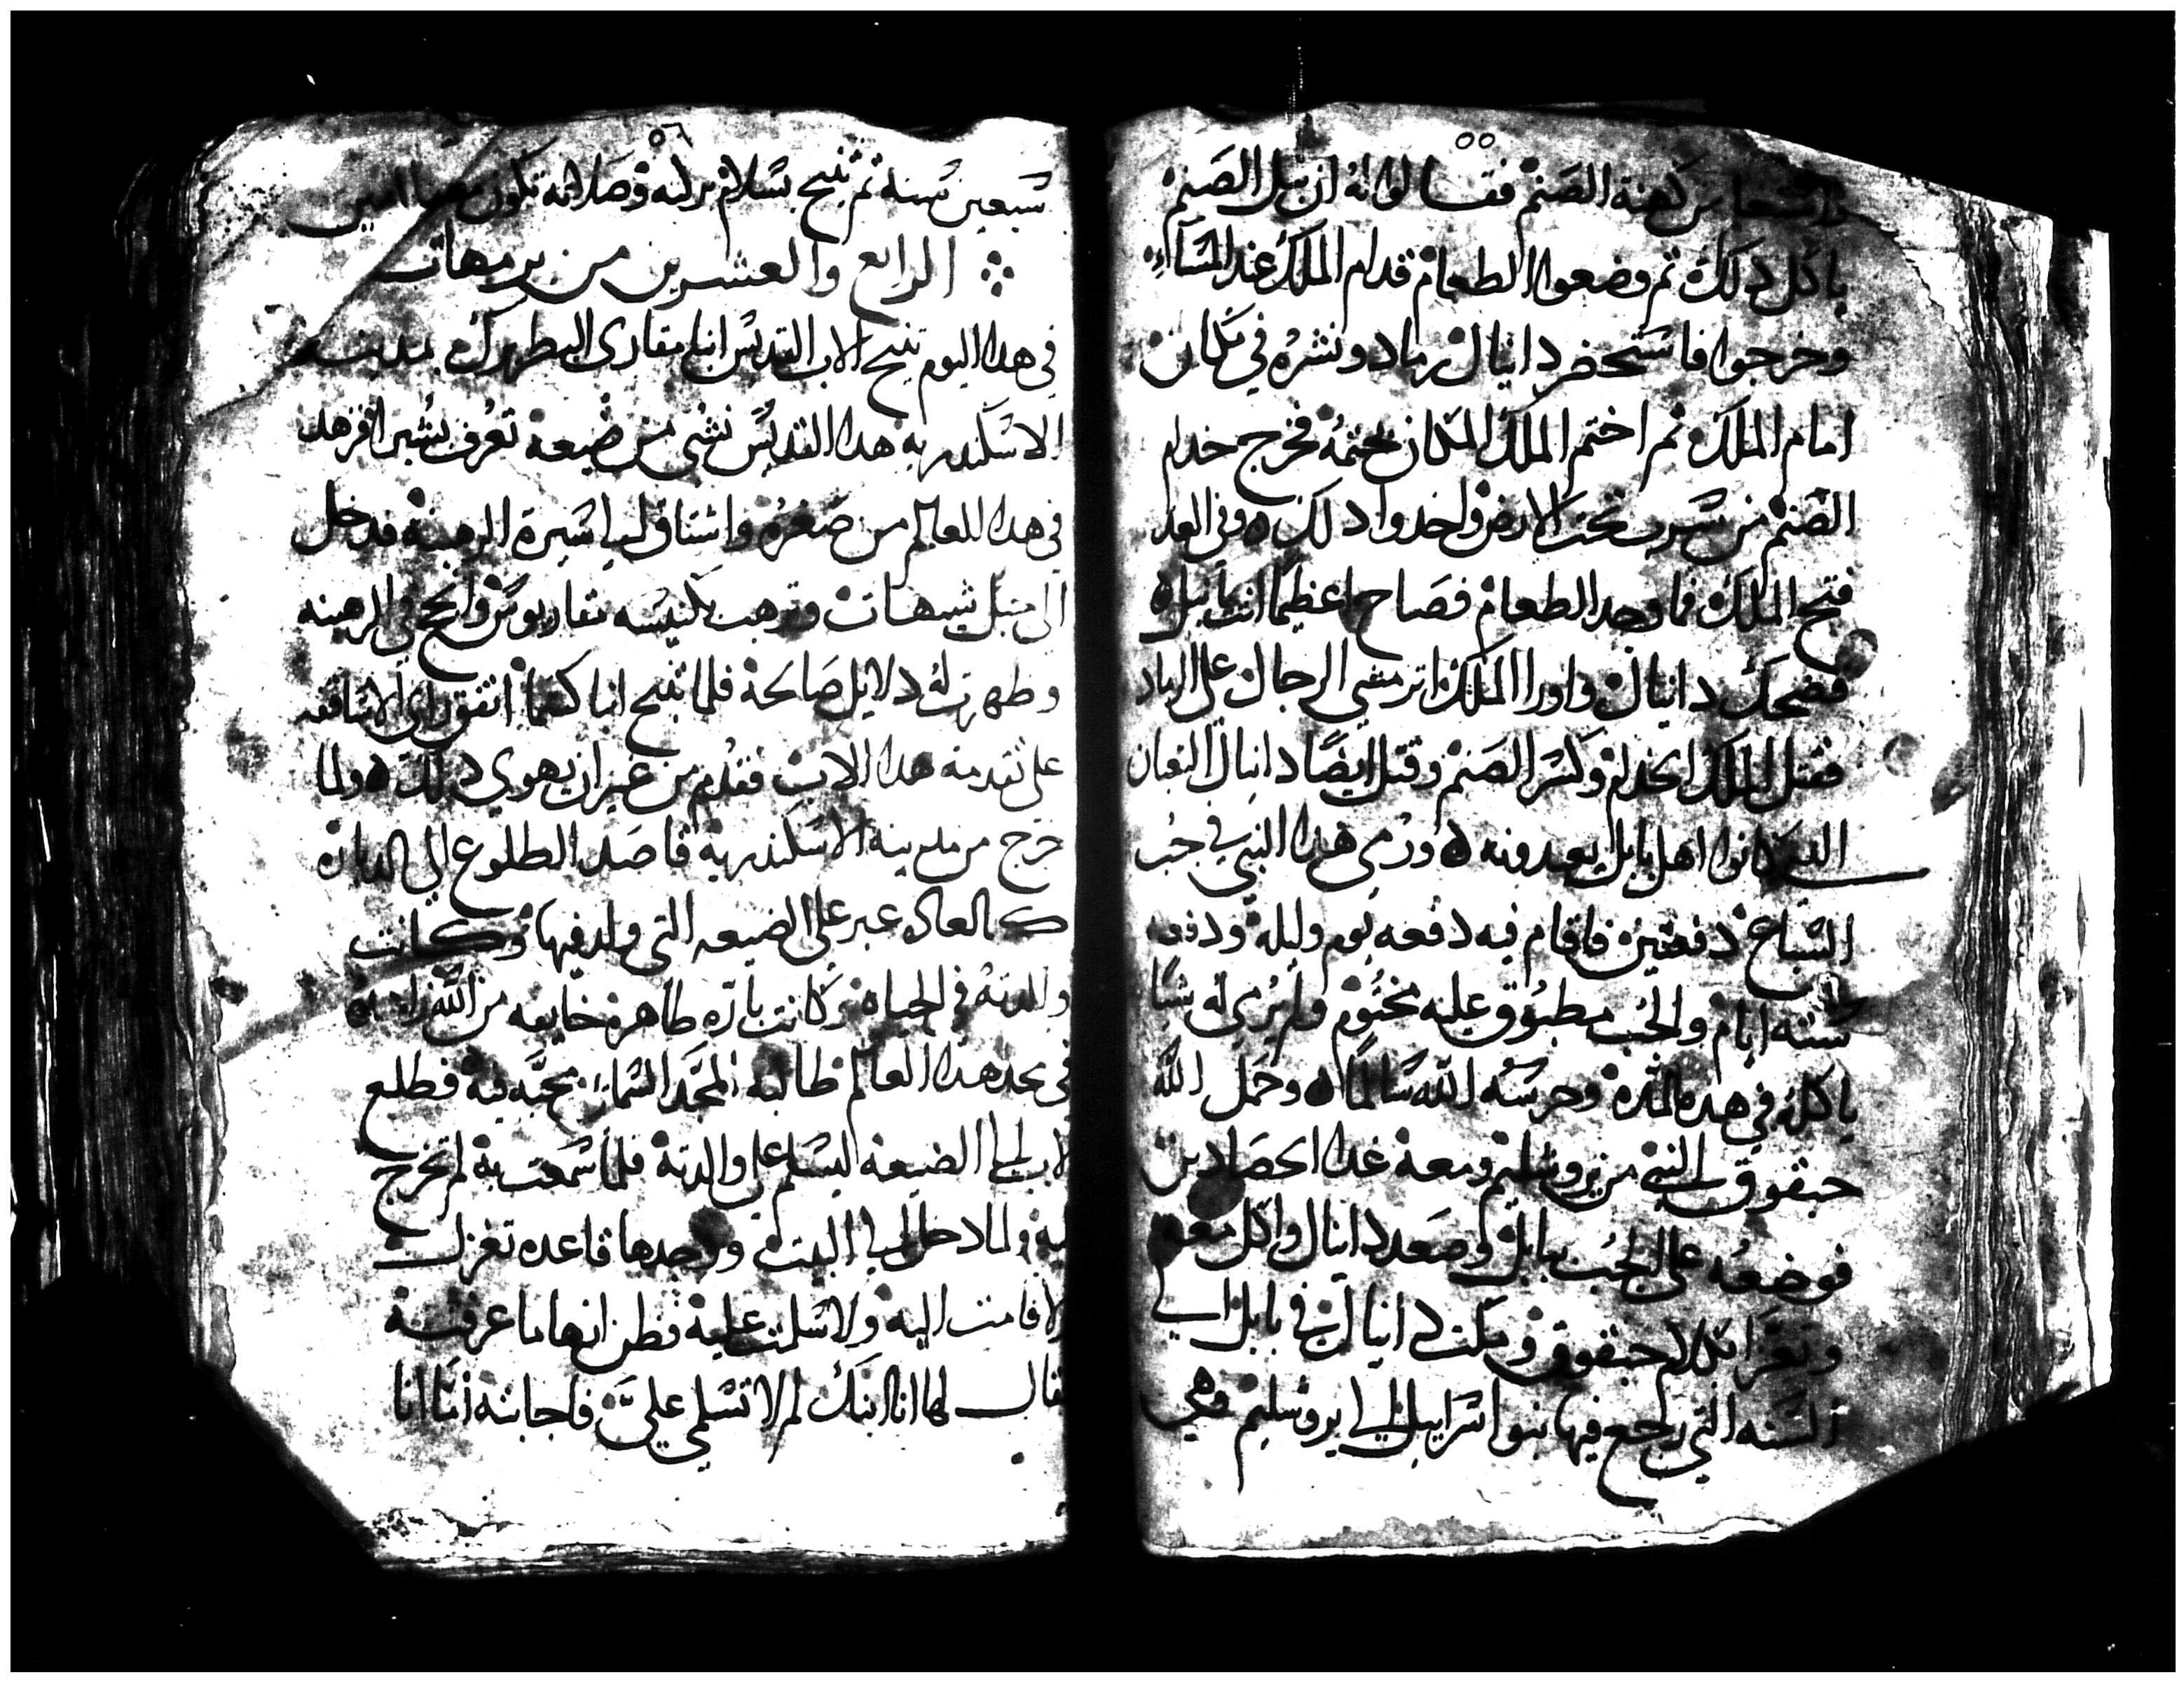 ٥٥
كهنة الصنم فقالوا له ان بيل الصنم
ياكل دلك ثم وضعوا الطعام قدام الملك عند المساء
وخرجوا فاستحضر دانيال رماد ونشره في المكان
امام الملك ثم اختم الملك المكان بختمه فخرج خدام
الصنم من سرب تحت الارض واخدوا دلك وفي الغد
فتح الملك فما وجد الطعام فصاح عظيما انت يا بيل
فضحك دانيال واورا الملك اتر مشي الرجال على الرماد
فقتل الملك الخدام وكسر الصنم وقتل ايضا دانيال التعبان
الدي كانوا اهل بابل يعبدونه ورمي هدا النبي في جب
السباع دفعتين فاقام فيه دفعه يوم وليلة ودفعه
سته ايام والجب مطبوق عليه مختوم ولم يرمي له شيا
ياكله في هده المدة وحرسه الله سالما وحمل الله
حبقوق النبي من يروشليم ومعه غدا الحصادين
فوضعه على الجب ببابل وصعد دانيال واكل معه
وتعزا بكلام حبقوق ومكت دانيال في بابل الي
السنه التي رجع فيها بنو اسراييل الي يروشليم وهي
٥٦
سبعين سنة ثم تنيح بسلام بركته وصلاته تكون معنا امين
الرابع والعشرين من برمهات
في هدا اليوم تنيح الاب القديس انبا مقاري البطريرك بمدينة
الاسكندرية هدا القديس نشي من ضيعة تعرف بشبرا فزهد
في هدا العالم من صغره واشتاق الي سيرة الرهبنة فدخل
الى جبل شيهات وترهب بكنيسه مقاريوس وانجح في الرهبنه
وظهرت له دلايل صالحة فلما تنيح انبا كسما اتفق راي الاساقفه
على تقدمة هدا الاب فقدم من غير ان يهوي دلك ولما
خرج من مدينة الاسكندرية قاصد الطلوع الي الديارة
كالعاده عبر على الضيعه التي ولد فيها وكانت
والدته في الحياه وكانت بارة طاهرة خايفه من الله
في مجد هدا العالم طالبة المجد السماي محبه فيه فطلع
الاب الي الضيعة ليسلم على والدتة فلما سمعت به لم تخرج
اليه ولما دخل الي البيت وجدها قاعده تغزل
لا قامت اليه ولا سلمت عليه فظن انها ما عرفته
فقال لها انا ابنك لم لا تسلمي علي فاجابته اما انا